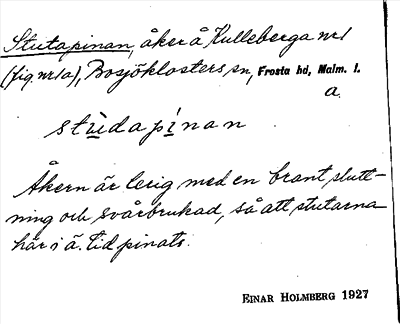 Stutapinan, åker å Kulleberga nr 1
(fig. nr 1a), Bosjöklosters sn, Frosta hd, Malm. l.
a.
stùdapínan
Åkern är lerig med en brant slutt-
ning och svårbrukad, så att stutarna
här i ä. tid pinats.
EINAR HOLMBERG 1927